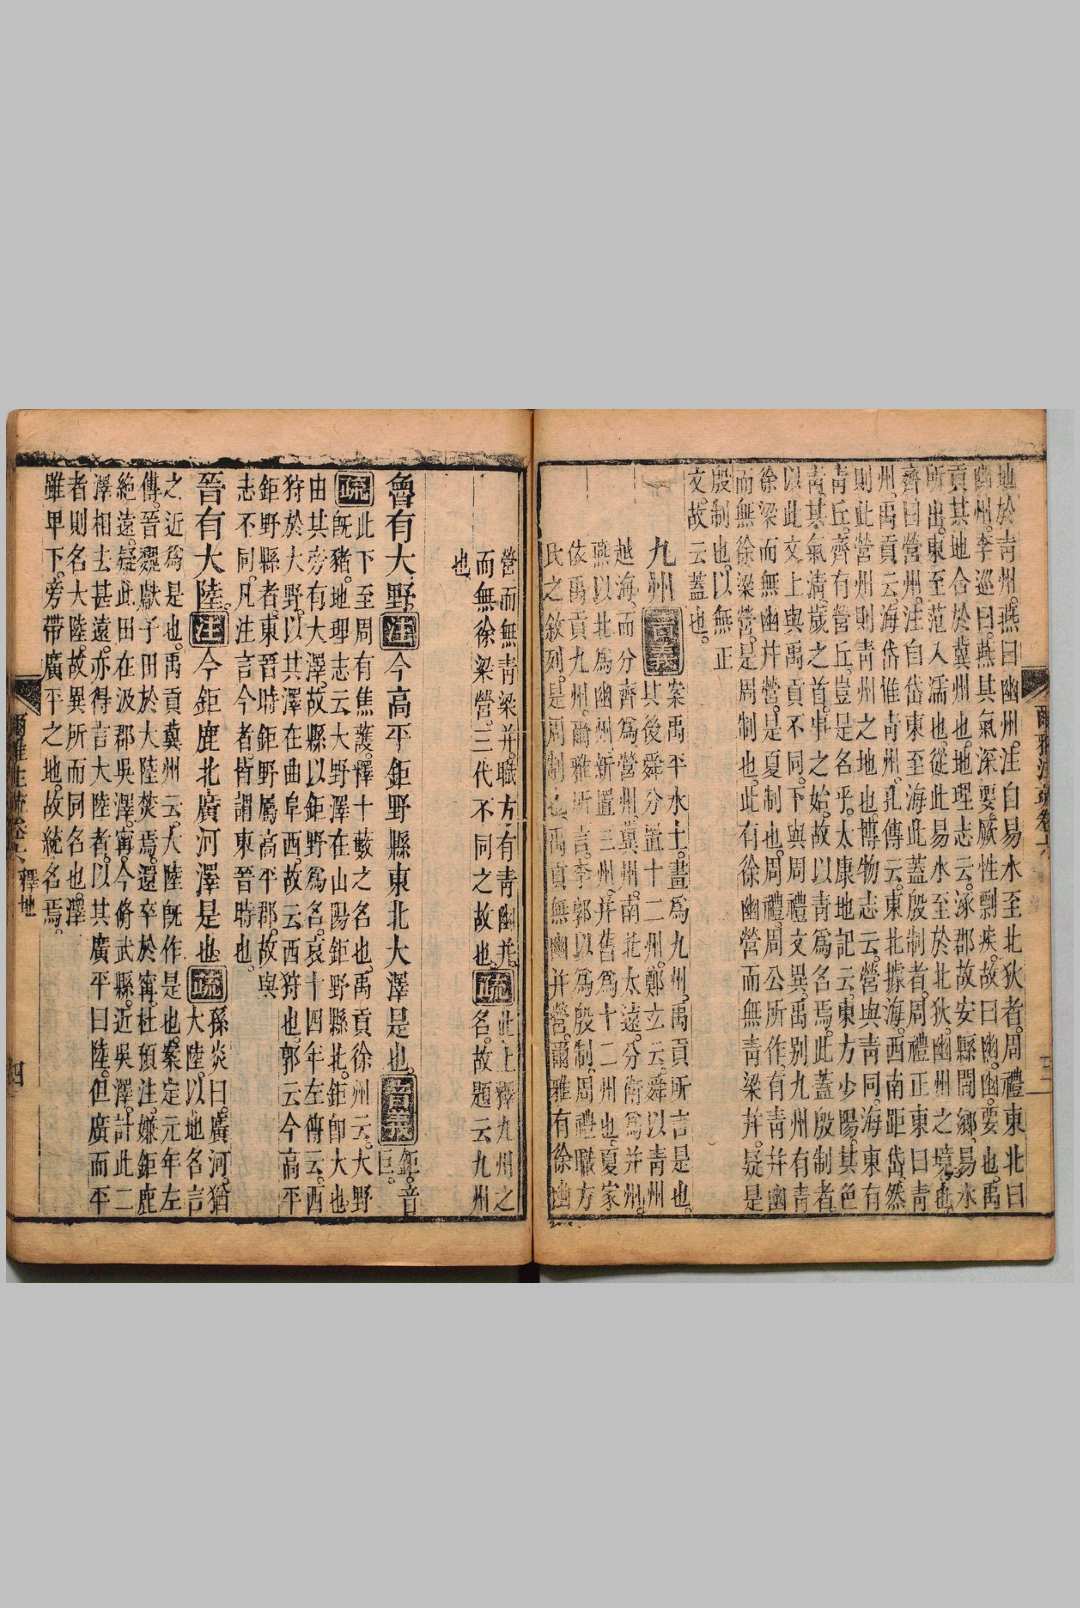 地於青州燕曰幽州注自易水至北狄者周禮東北曰
幽州李巡曰燕其氣深要厥性剽疾故曰幽幽要也禹
貢其地合於冀州也地理志云涿郡故安縣閻鄉易水
所出東至范入濡也從此易水至於北狄幽州之境也
齊曰營州注自岱東至海此蓋殷制者周禮正東曰靑
州禹貢云海岱惟靑州孔傳云東北據海西南距岱然
則此營州則靑州之地也博物志云營與靑同海東有
靑丘齊有營丘豈是名乎太康地記云東方少陽其色
靑其氣清歲之首事之始故以靑爲名焉此蓋殷制者
以此文上與禹貢不同下與周禮文異禹别九州有靑
徐梁而無幽并營是夏制也周禮周公所作有靑并幽
而無徐梁營是周制也此有徐幽營而無靑梁并疑是
殷制也以無正
文故云蓋也
九州 音義 案禹平水土畫爲九州禹貢所言是也
其後舜分置十二州鄭玄云舜以靑州
越海而分齊爲營州冀州南北太遠分衛爲并州
燕以北爲幽州新置三州并舊爲十二州也夏家
依禹貢九州爾雅所言李郭以爲殷制周禮職方
氏之敘列是周制也禹貢無幽并營爾雅有徐幽
營而無靑梁并職方有靑幽并
而無徐梁營三代不同之故也 疏 此上釋九州之
名故題云九州
也
魯有大野 注 今高平鉅野縣東北大澤是也 音義 鉅音
巨
疏 此下至周有焦護釋十藪之名也禹貢徐州云大野
旣豬地理志云大野澤在山陽鉅野縣北鉅卽大也
由其旁有大澤故縣以鉅野爲名哀十四年左傳云西
狩於大野以其澤在曲阜西故云西狩也郭云今高平
鉅野縣者東晉時鉅野屬高平郡故與
志不同凡注言今者皆謂東晉時也
晉有大陸 注 今鉅鹿北廣河澤是也 疏 孫炎曰廣河猶
大陸以地名言
之近爲是也禹貢冀州云大陸旣作是也案定元年左
傳晉魏獻子田於大陸焚焉還卒於甯杜預注嫌鉅鹿
絶遠疑此田在汲郡吳澤甯今脩武縣近吳澤計此二
澤相去甚遠亦得言大陸者以其廣平曰陸但廣而平
者則名大陸故異所而同名也澤
雖卑下旁帶廣平之地故統名焉
爾雅注疏卷六 釋地
四